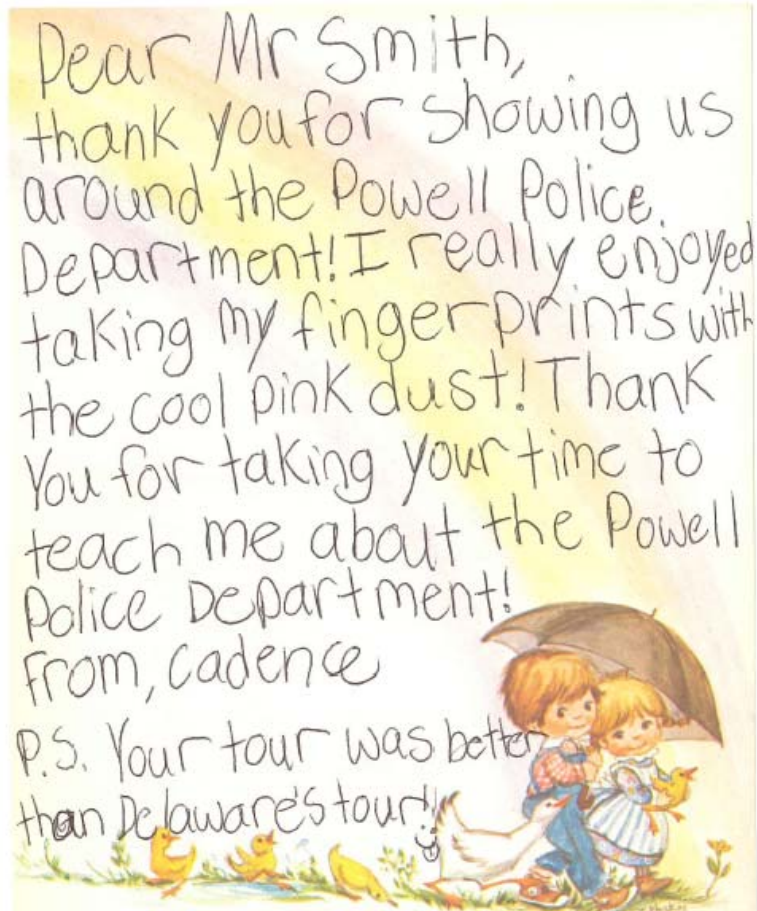 Dear Mr Smith,
thank you for showing us
around the Powell Police
Department! I really enjoyed
taking my fingerprints with
the cool pink dust! Thank
You for taking your time to
teach me about the Powell
Police Department!
From, Cadence
P.S. Your tour was better
than Delaware's tour!!